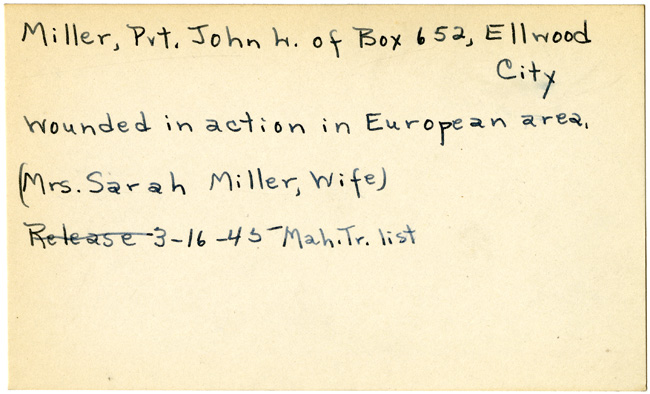 Miller, Pvt. John L. of Box 652, Ellwood
City
wounded in action in European area.
(Mrs. Sarah Miller, Wife)
Release 3-16-45 Mah. Tr. list